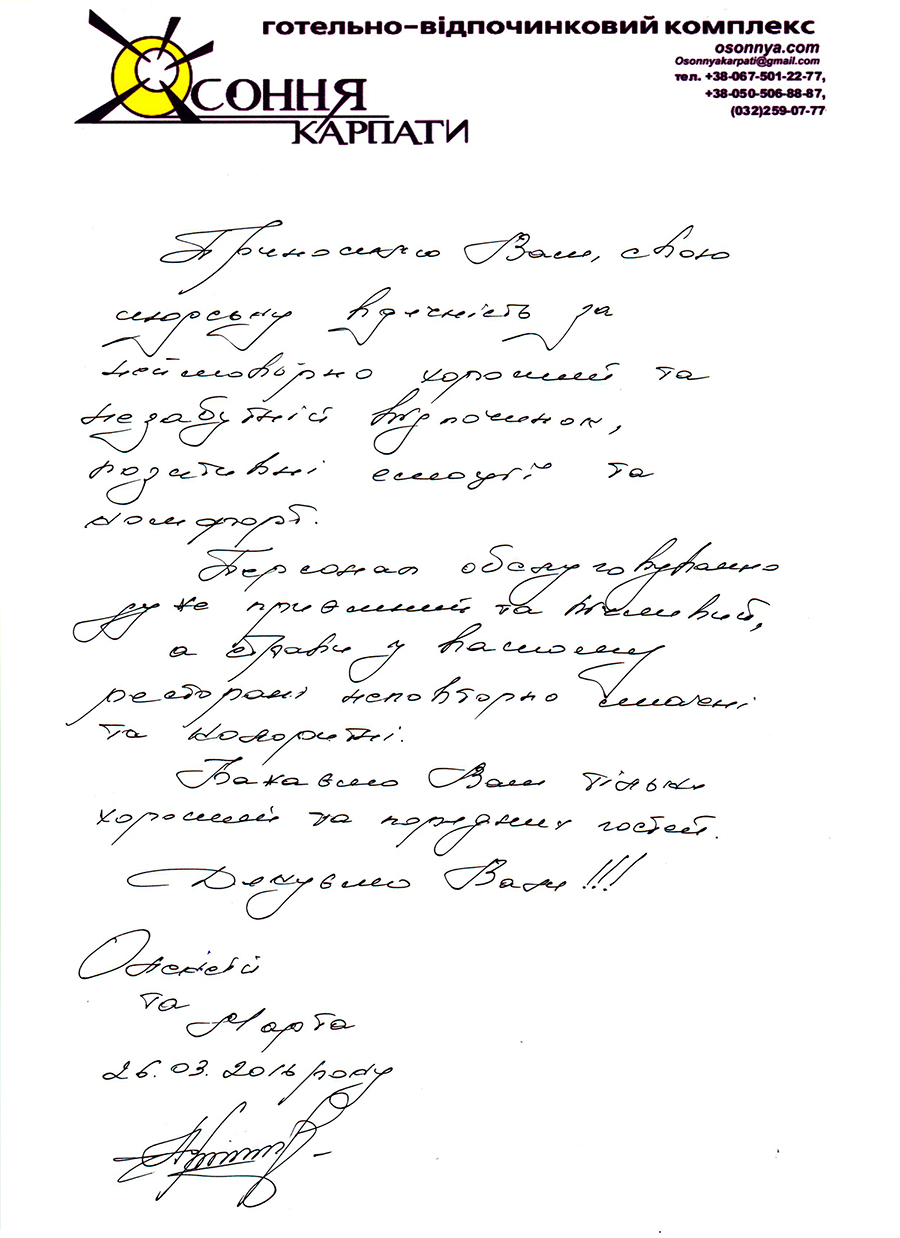 готельно-відпочинковий комплекс
osonnya.com
Osonnyakarpati@gmail.com
тел. +38-067-501-22-77,
+38-050-506-88-87,
(032)259-07-77
ОСОННЯ
КАРПАТИ
Приносимо Вам, свою
щирську вдячність за
неймовірно хороший та
незабутній відпочинок,
позитивні емоції та
комфорт.
Персонал обслуговування
дуже приємний та
а страви у вашому
ресторані неповторно смачні
та колоритні.
Бажаємо Вам тільки
хороший та порядних гостей.
Дякуємо Вам!!!
Олексій
та
Марта
26.03.2016 року